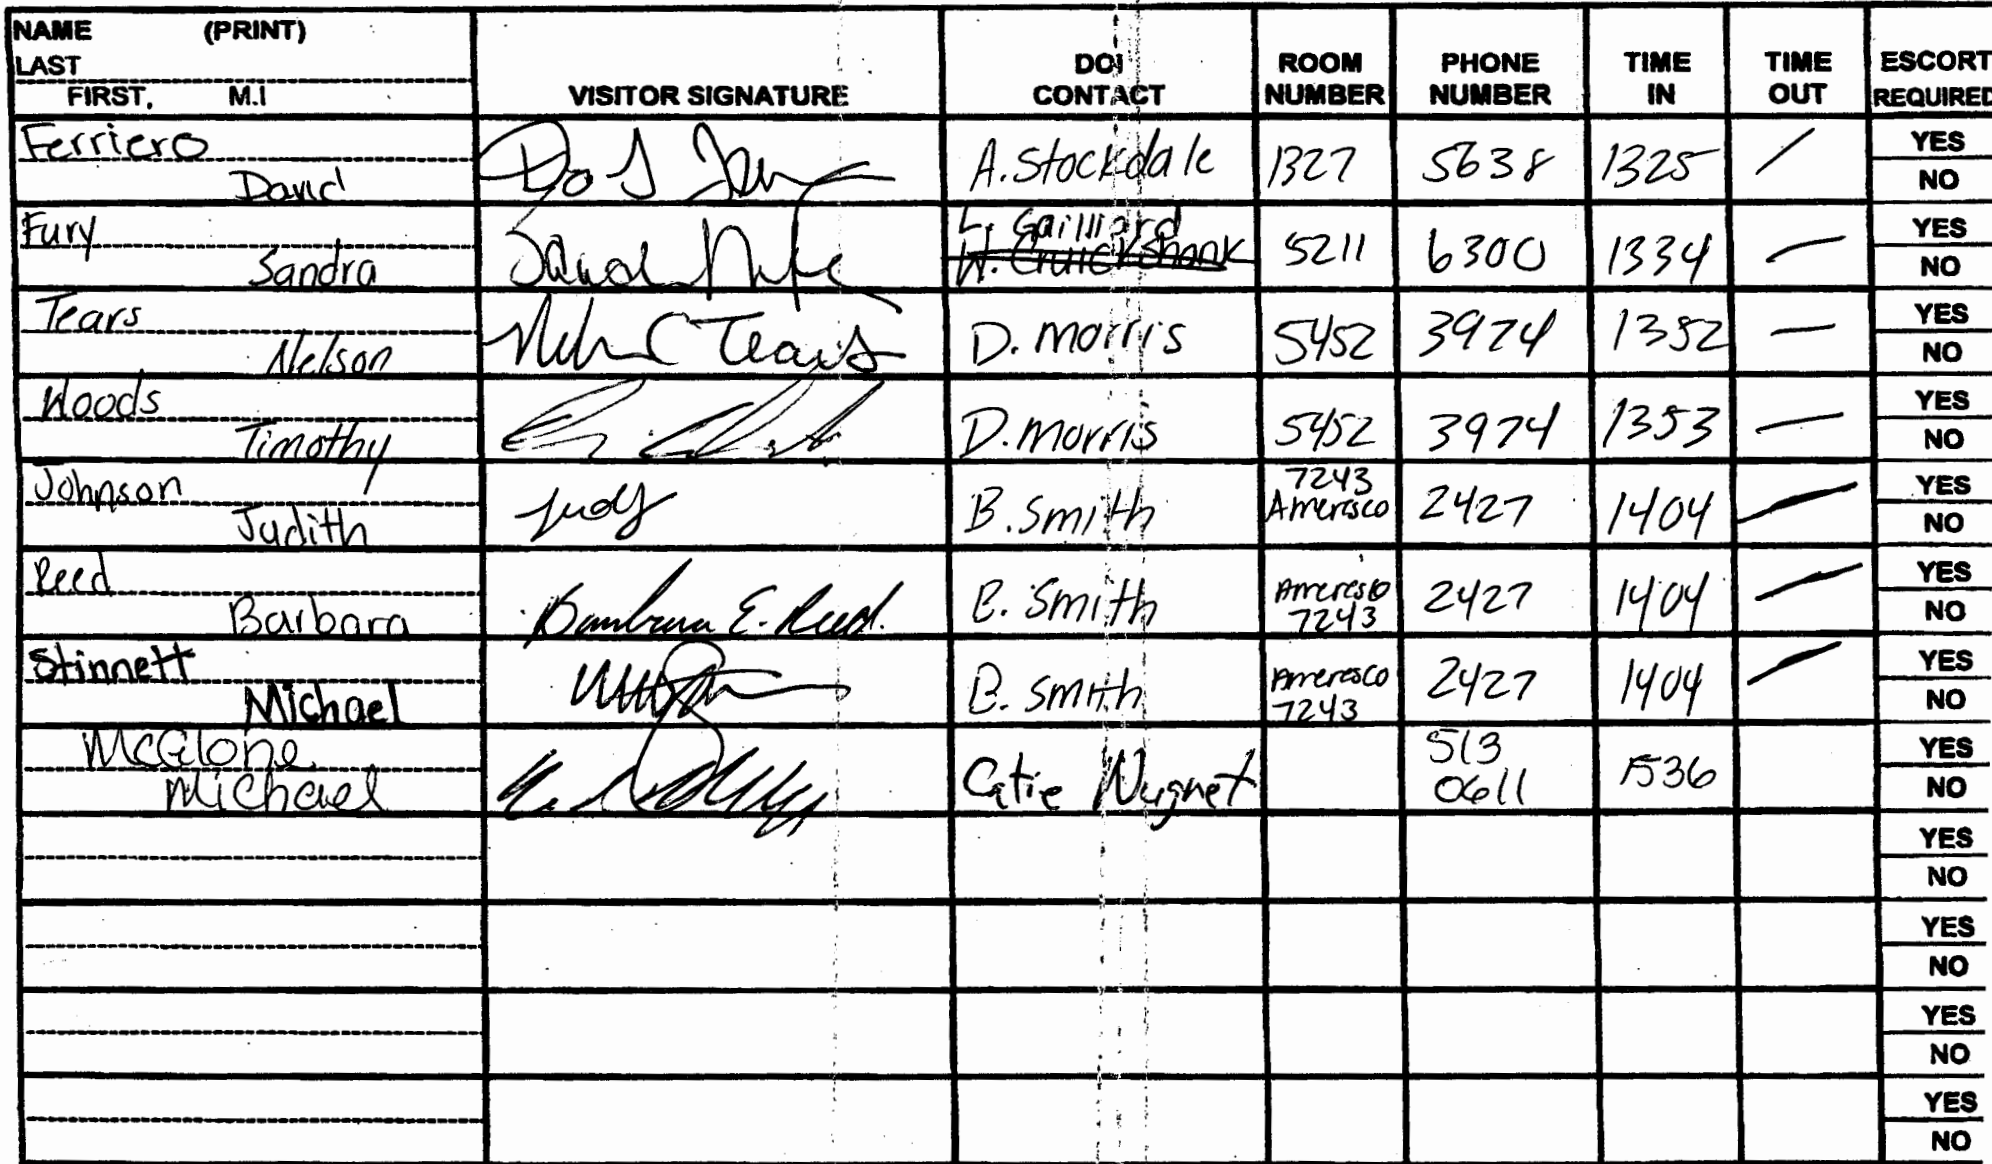 NAME (PRINT)
LAST
FIRST, M.I
VISITOR SIGNATURE
DOI CONTACT
ROOM NUMBER
PHONE NUMBER
TIME IN
TIME OUT
ESCORT REQUIRED
Ferriero
David
A. Stockdale 1327 5638 1325 / YES
NO
Fury
Sandra
L. Gailliard
W. Cruickshank
5211 6300 1334 — YES
NO
Tears
Nelson
Tears
D. Morris 5452 3974 1352 — YES
NO
Woods
Timothy
D. Morris 5452 3974 1353 — YES
NO
Johnson
Judith
Judy
B. Smith
7243
Ameresco
2427 1404 — YES
NO
Reed
Barbara
Barbara E. Reed.
B. Smith
Ameresco
7243
2427 1404 — YES
NO
Stinnett
Michael
B. Smith
Ameresco
7243
2427 1404 — YES
NO
McGlone
Michael
Catie Nugnet
513
0611
1536
YES
NO
YES
NO
YES
NO
YES
NO
YES
NO